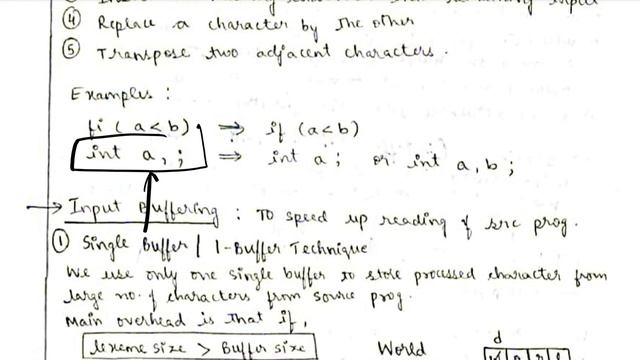 ④ Replace a character by the other
⑤ Transpose two adjacent characters.
Examples :
fi (a<b) ⇒ if (a<b)
int a,; ⇒ int a; or int a,b;
→ Input Buffering : To speed up reading of src prog.
① Single Buffer | 1-Buffer Technique
We use only one single buffer to store processed character from
large no. of characters from source prog.
Main overhead is that if,
lexeme size > Buffer size World d